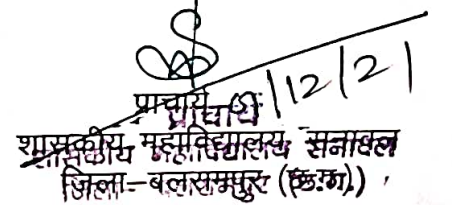 /12/21
प्राचार्य
शासकीय महाविद्यालय सनावल
जिला-बलरामपुर (छ.ग.)